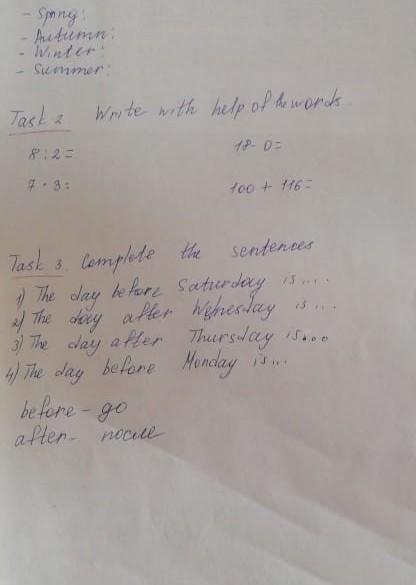 - Spring:
- Autumn:
- Winter:
- Summer:
Task 2 Write with help of the words
8:2= 18-0=
7·3= 100 + 116=
Task 3. Complete the sentences
1) The day before Saturday is....
2) The day after Wehesday is ...
3) The day after Thursday is....
4) The day before Monday is...
before - go
after - после